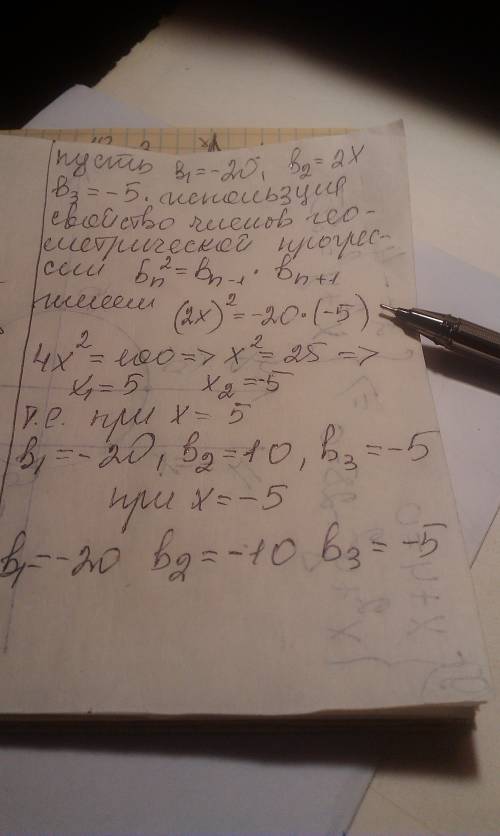 пусть b₁=-20, b₂=2x
b₃=-5. используя
свойство членов гео-
метрической прогрес-
сии bₙ²=bₙ₋₁·bₙ₊₁
имеем (2x)²=-20·(-5)
4x²=100=>x²=25=>
x₁=5 x₂=-5
т.е. при x=5
b₁=-20, b₂=10, b₃=-5
при x=-5
b₁=-20 b₂=-10 b₃=-5